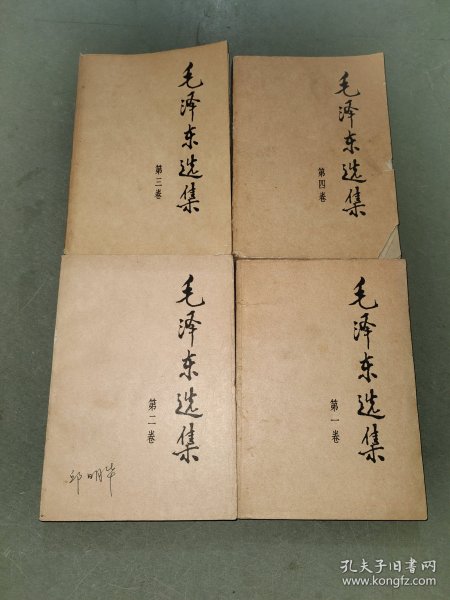 毛泽东选集
第三卷
毛泽东选集
第四卷
毛泽东选集
第二卷
毛泽东选集
第一卷
孔夫子旧书网
www.kongfz.com